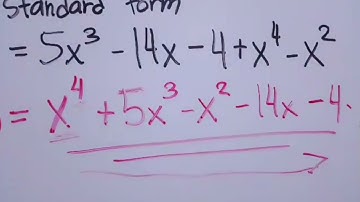 Standard form
= 5x³ - 14x - 4 + x⁴ - x²
= x⁴ + 5x³ - x² - 14x - 4.